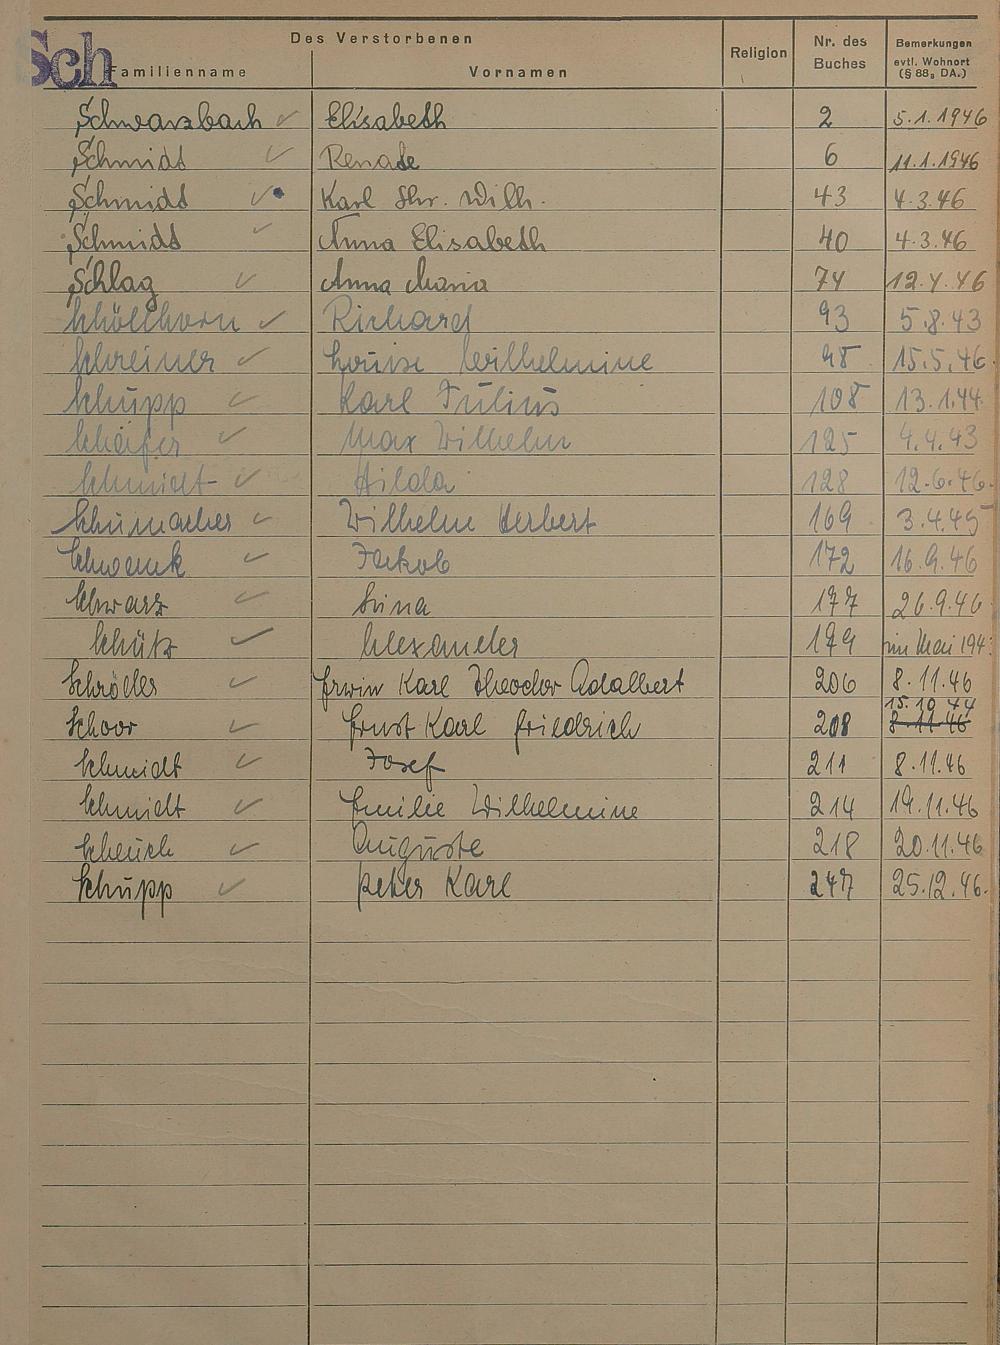 Sch
Des Verstorbenen
Familienname Vornamen Religion Nr. des Buches Bemerkungen evtl. Wohnort (§ 88, DA.)
Schwarzbach ✓ Elisabeth 2 5.1.1946
Schmidt ✓ Renate 6 11.1.1946
Schmidt ✓ Karl Chr. Wilh. 43 4.3.46
Schmidt ✓ Anna Elisabeth 40 4.3.46
Schlag ✓ Anna Maria 74 12.4.46
Schöllhorn ✓ Richard 93 5.8.43
Schreiner ✓ Louise Wilhelmine 98 15.5.46
Schupp ✓ Karl Julius 108 13.1.44
Schäfer ✓ Max Wilhelm 125 4.4.43
Schmidt ✓ Hilda 128 12.6.46
Schumacher ✓ Wilhelm Herbert 169 3.4.45
Schwenk ✓ Jakob 172 16.9.46
Schwarz ✓ Lina 177 26.9.46
Schütz ✓ Alexander 179 im Mai 194
Schröder ✓ Erwin Karl Theodor Adalbert 206 8.11.46
Schoor ✓ Ernst Karl Friedrich 208 15.10.44 8.11.46
Schmidt ✓ Josef 211 8.11.46
Schmidt ✓ Emilie Wilhelmine 214 19.11.46
Scheuch ✓ Auguste 218 20.11.46
Schupp ✓ Peter Karl 247 25.12.46.